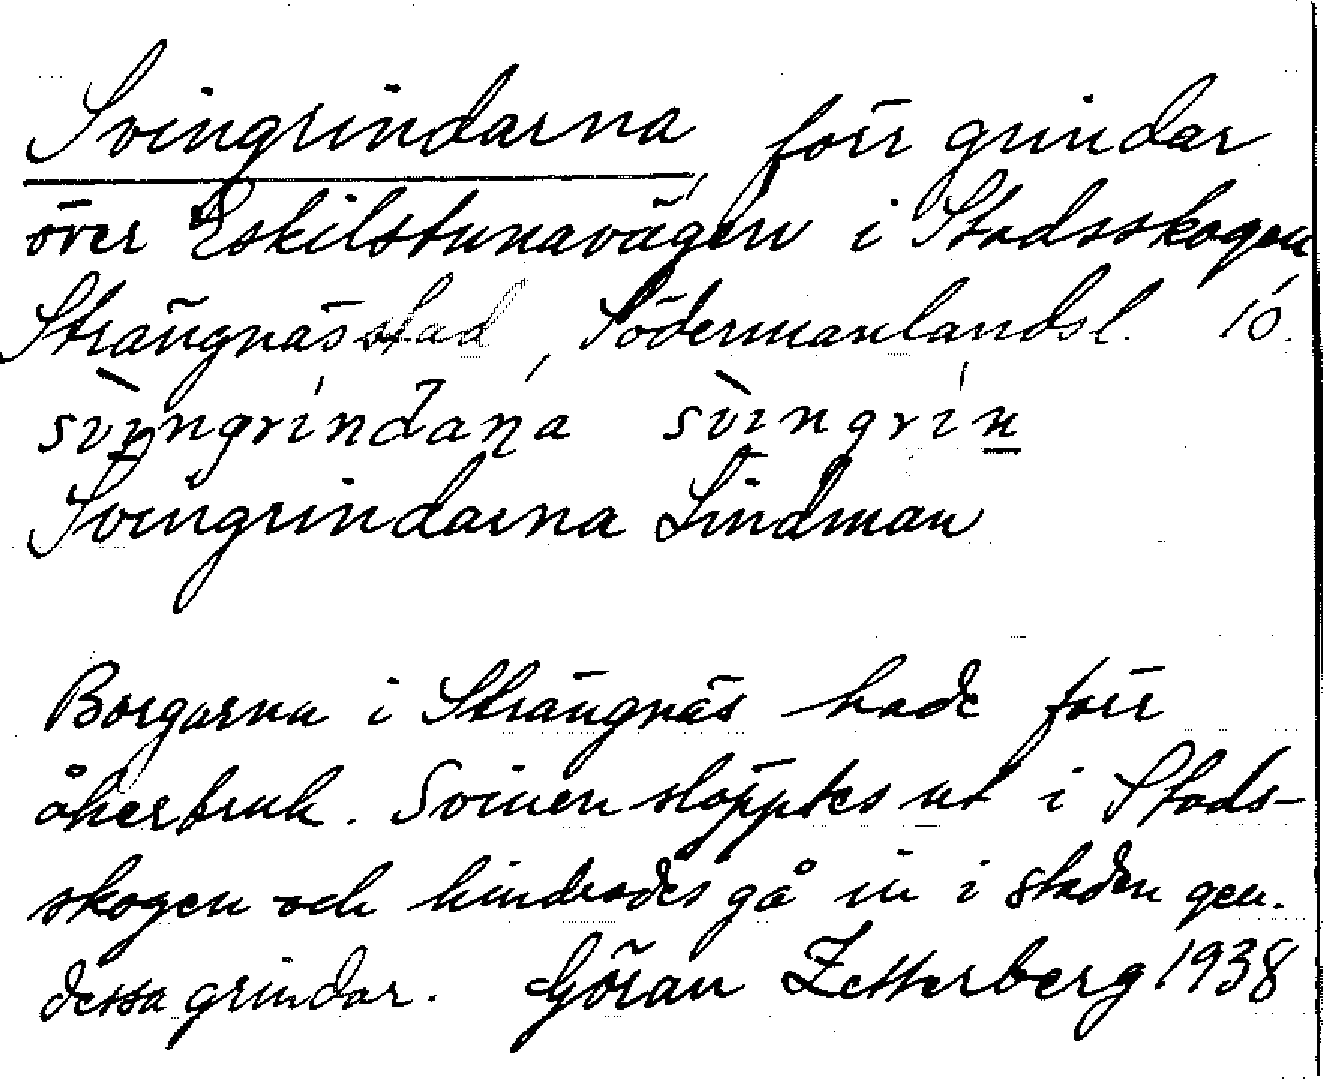 Svingrindarna, förr grindar
över Eskilstunavägen i Stadsskogen,
Strängnäs stad, Södermanlands l. 10.
svìngríndaṇa svìngrín
Svingrindarna Lindman
Borgarna i Strängnäs hade förr
åkerbruk. Svinen släpptes ut i Stads-
skogen och hindrades gå in i staden gen.
dessa grindar. Göran Zetterberg 1938